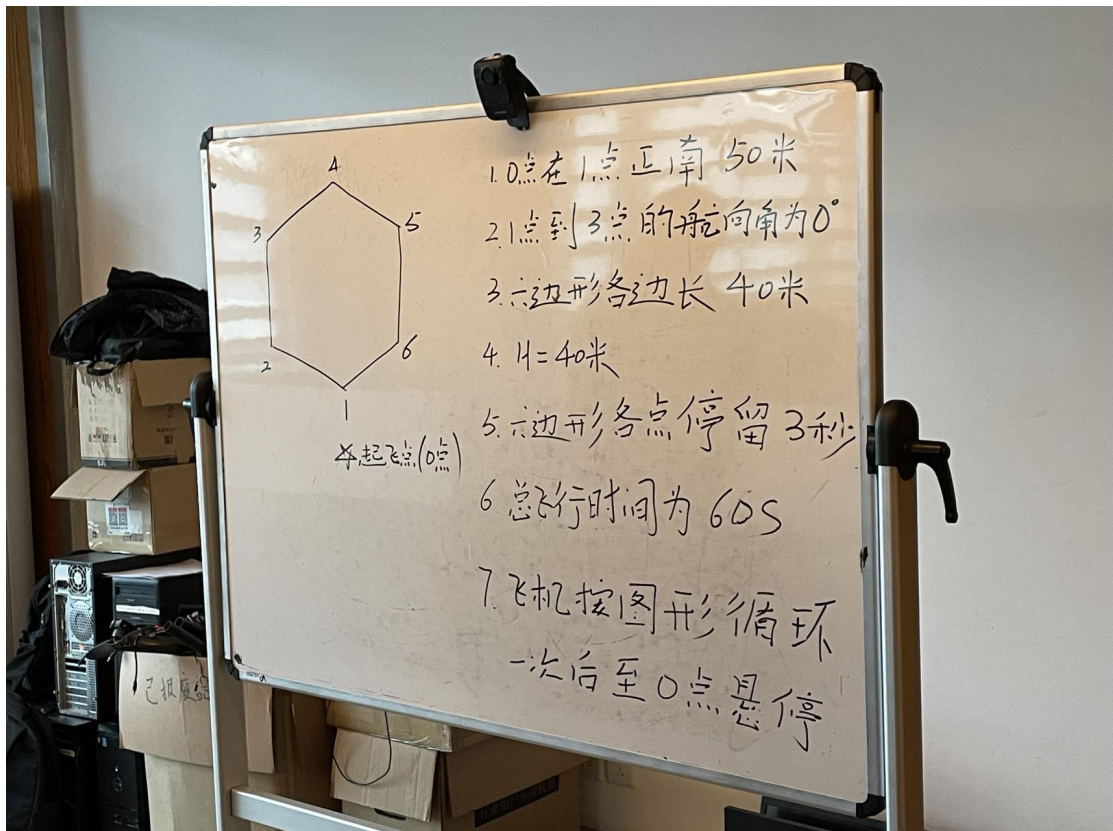 4
3
5
2
6
1
起飞点(0点)
1.0点在1点正南50米
2.1点到3点的航向角为0°
3.六边形各边长40米
4.H=40米
5.六边形各点停留3秒
6 总飞行时间为60S
7.飞机按图形循环
一次后至0点悬停
已报废